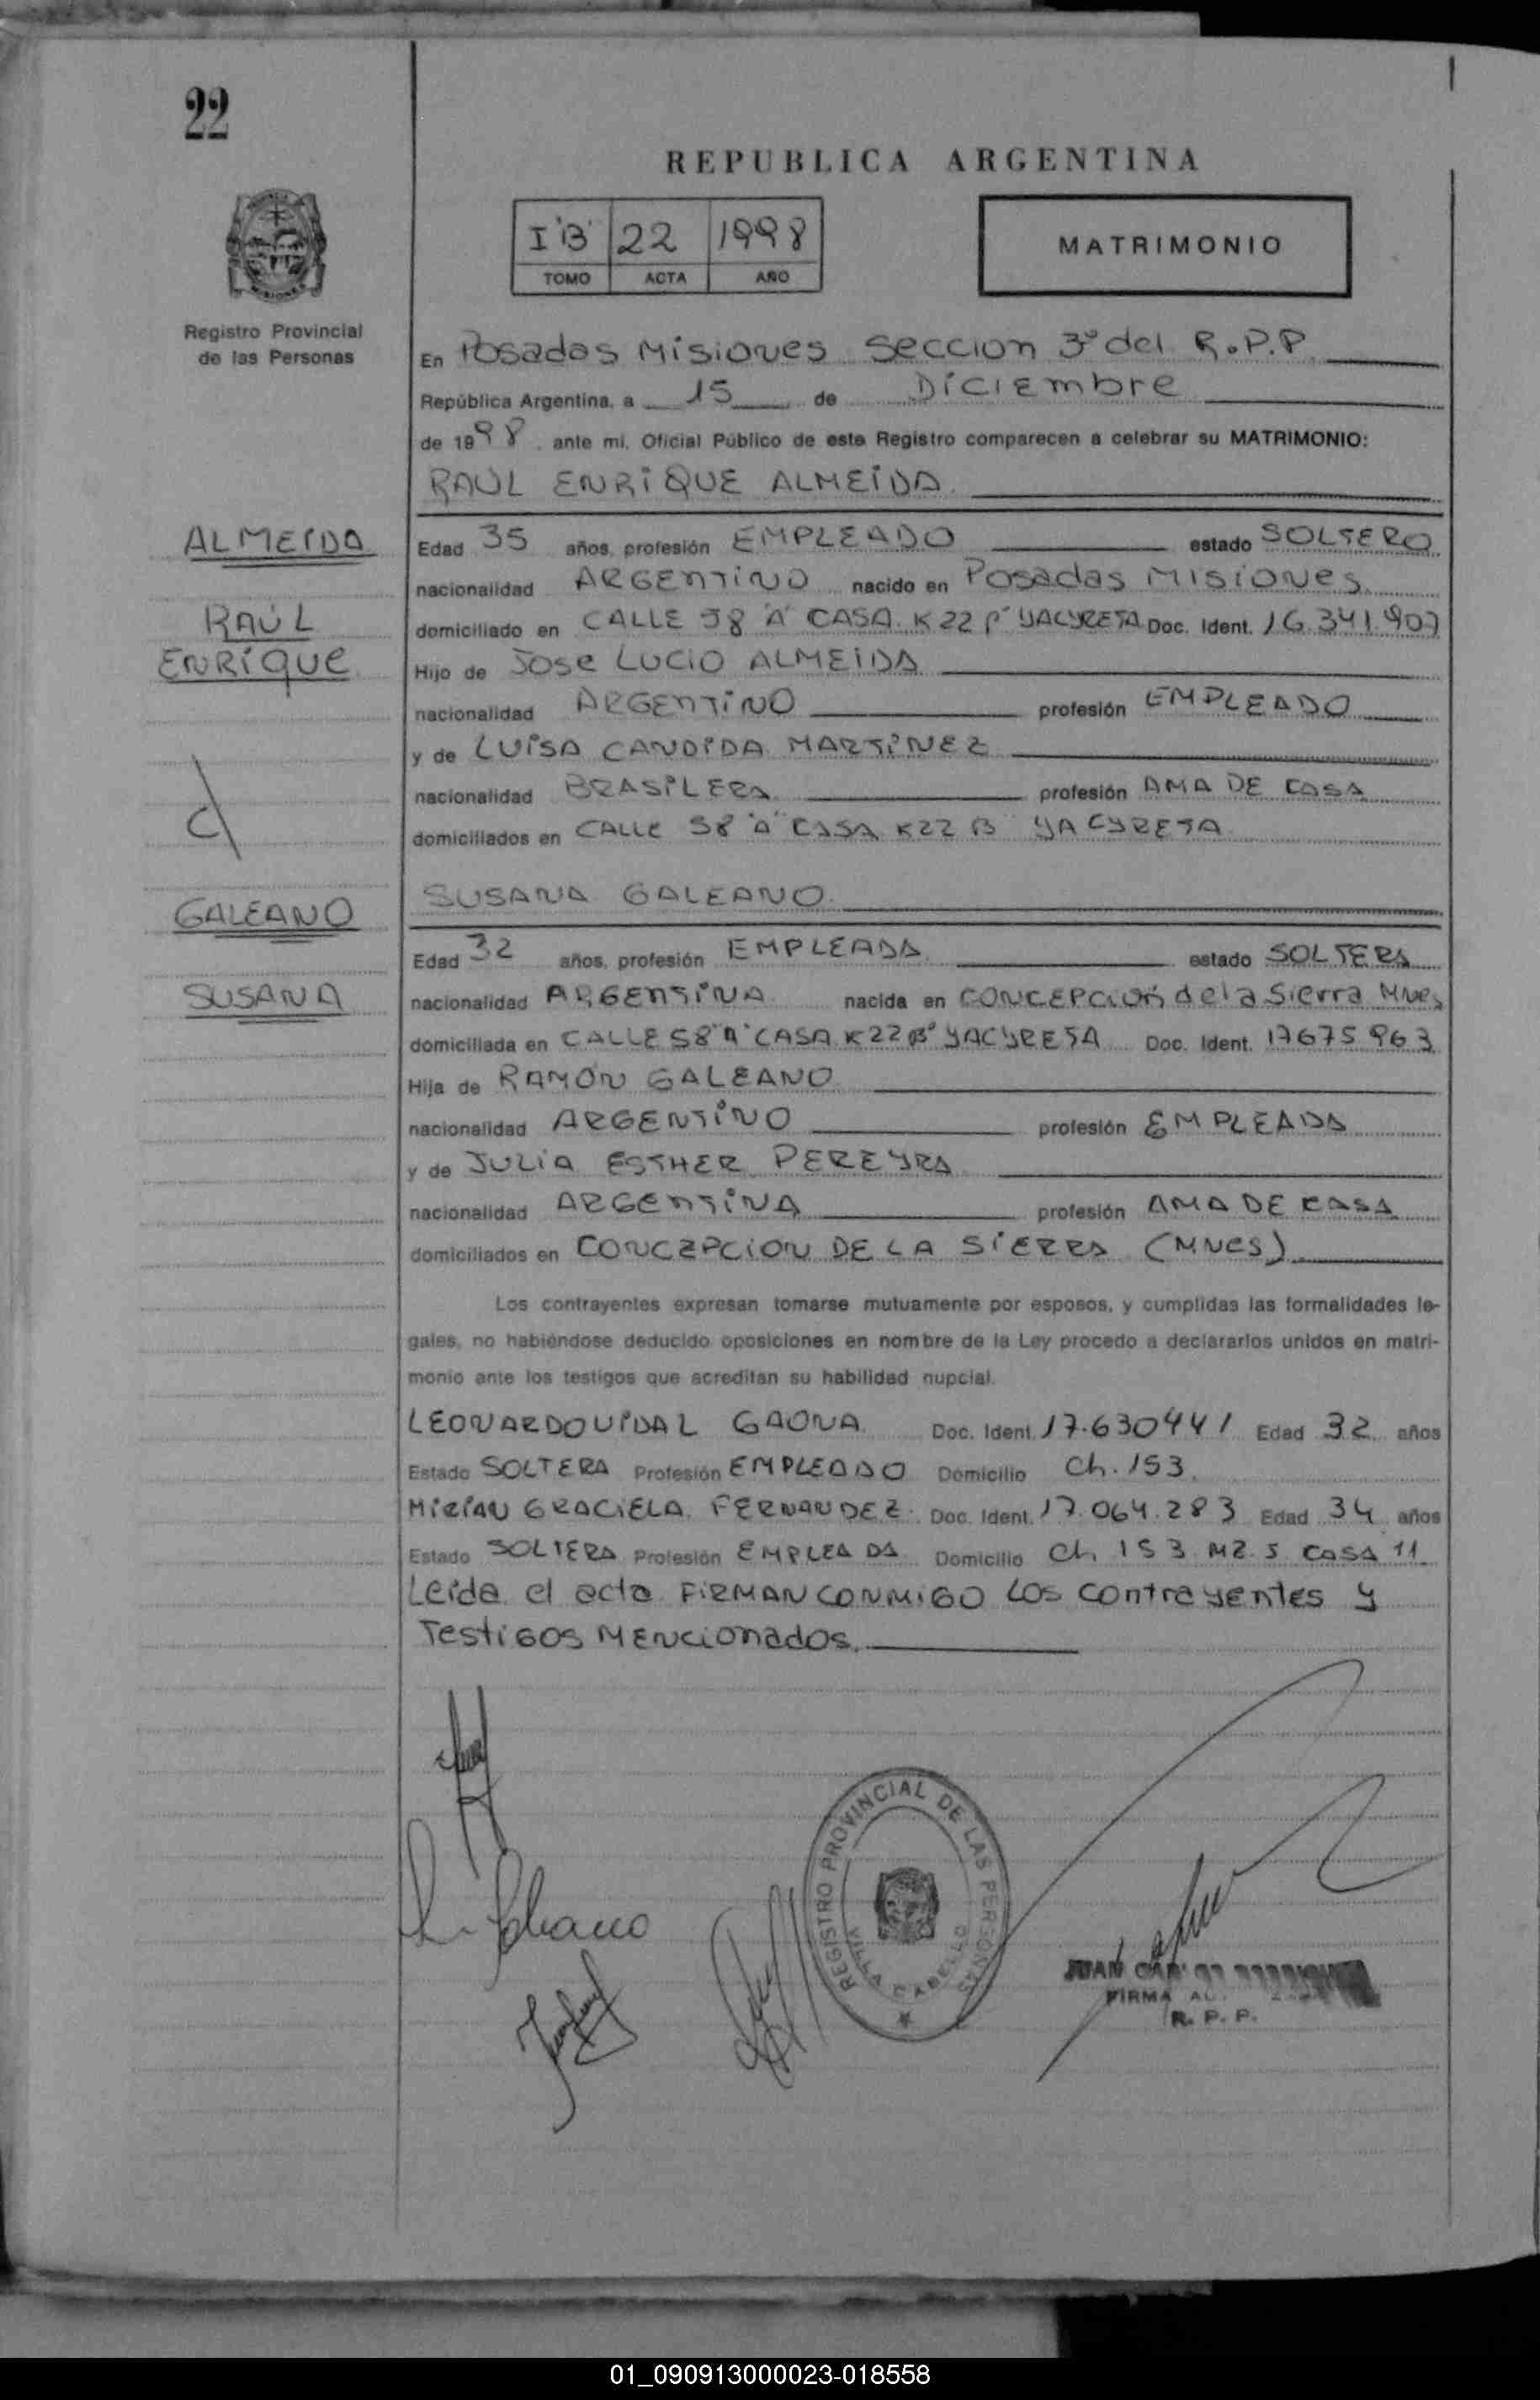 22
REPUBLICA ARGENTINA
I "B" 22 1998
TOMO ACTA AÑO
MATRIMONIO
Registro Provincial
de las Personas
En Posadas Misiones Seccion 3º del R.P.P.
República Argentina, a 15 de Diciembre
de 1998, ante mi, Oficial Público de este Registro comparecen a celebrar su MATRIMONIO:
RAÚL ENRIQUE ALMEIDA
ALMEIDA
RAÚL
ENRIQUE
Edad 35 años, profesión EMPLEADO estado SOLTERO
nacionalidad ARGENTINO nacido en Posadas Misiones
domiciliado en CALLE 58 "A" CASA K22 Bº YACYRETA Doc. Ident. 16.341.907
Hijo de Jose LUCIO ALMEIDA
nacionalidad ARGENTINO profesión EMPLEADO
y de LUISA CANDIDA MARTINEZ
nacionalidad BRASILERA profesión AMA DE CASA
domiciliados en CALLE 58 "A" CASA K22 Bº YACYRETA
SUSANA GALEANO
GALEANO
SUSANA
Edad 32 años, profesión EMPLEADA estado SOLTERA
nacionalidad ARGENTINA nacida en CONCEPCION de la Sierra Mnes
domiciliada en CALLE 58 "A" CASA K22 Bº YACYRETA Doc. Ident. 17675963
Hija de RAMÓN GALEANO
nacionalidad ARGENTINO profesión EMPLEADA
y de JULIA ESTHER PEREYRA
nacionalidad ARGENTINA profesión AMA DE CASA
domiciliados en CONCEPCION DE LA SIERRA (MNES)
Los contrayentes expresan tomarse mutuamente por esposos, y cumplidas las formalidades le-
gales, no habiéndose deducido oposiciones en nombre de la Ley procedo a declararlos unidos en matri-
monio ante los testigos que acreditan su habilidad nupcial.
LEONARDO VIDAL GAONA Doc. Ident. 17.630441 Edad 32 años
Estado SOLTERA Profesión EMPLEADO Domicilio Ch. 153
MIRIAN GRACIELA FERNANDEZ Doc. Ident. 17.064.283 Edad 34 años
Estado SOLTERA Profesión EMPLEADA Domicilio Ch 153 MZ. 5 CASA 11
Leida el acta FIRMAN CONMIGO LOS contrayentes y
Testigos MENCIONADOS.
REGISTRO PROVINCIAL DE LAS PERSONAS
VILLA CABELLO
JUAN
FIRMA
R. P. P.
01_090913000023-018558